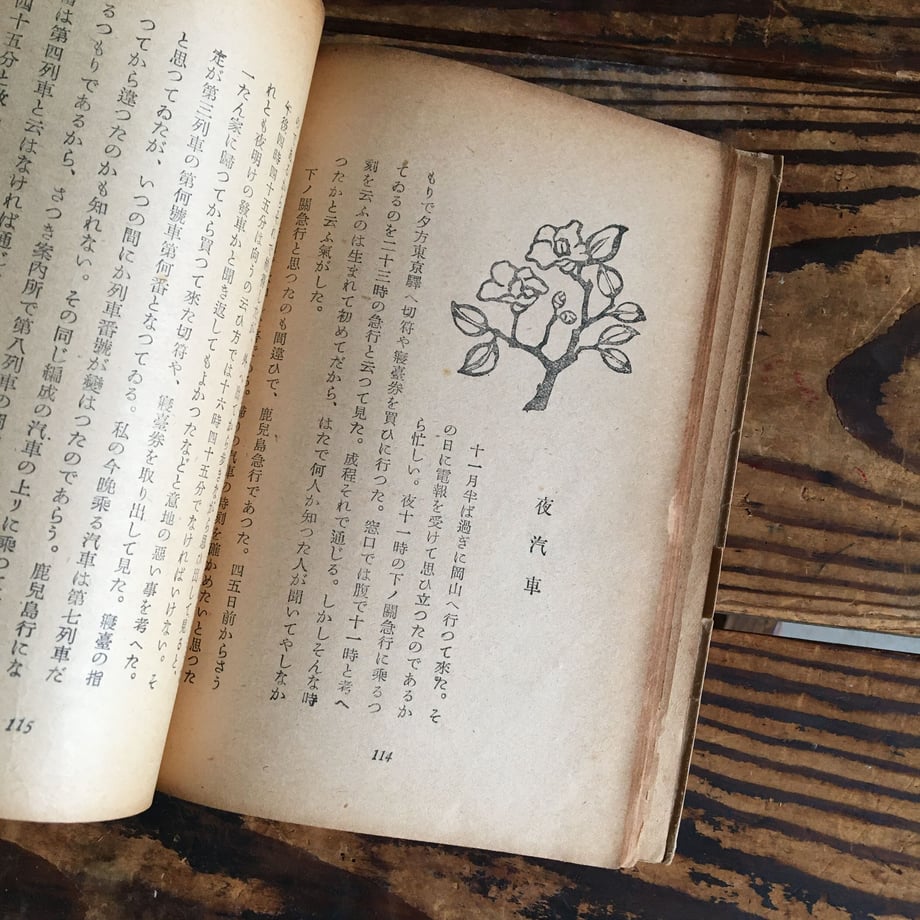 夜汽車
十一月半ば過ぎに岡山へ行つて來た。そ
の日に電報を受けて思ひ立つたのであるか
ら忙しい。夜十一時の下ノ關急行に乘るつ
もりで夕方東京驛へ切符や寢臺券を買ひに行つた。窓口では腹で十一時と考へ
てゐるのを二十三時の急行と云つて見た。成程それで通じる。しかしそんな時
刻を云ふのは生まれて初めてだから、はたで何人か知つた人が聞いてやしなか
つたかと云ふ氣がした。
下ノ關急行と思つたのも間違ひで、鹿兒島急行であつた。四五日前からさう
の時刻を確かめたいと思つた
午後四時四十五分は向うの云ひ方では十六時四十五分でなければいけない。そ
れとも夜明けの發車かと聞き返してもよかつたなどと意地の惡い事を考へた。
一たん家に歸つてから買つて來た切符や、寢臺券を取り出して見た。寢臺の指
定が第三列車の第何號車第何番となつてゐる。私の今晩乘る汽車は第七列車だ
と思つてゐたが、いつの間にか列車番號が變はつたのであらう。鹿兒島行にな
つてから違つたのかも知れない。その同じ編成の汽車の上りに乘つて
るつもりであるから、さつき案内所で第八列車の
は第四列車と云はなければ通じ
四十五分と
114
115